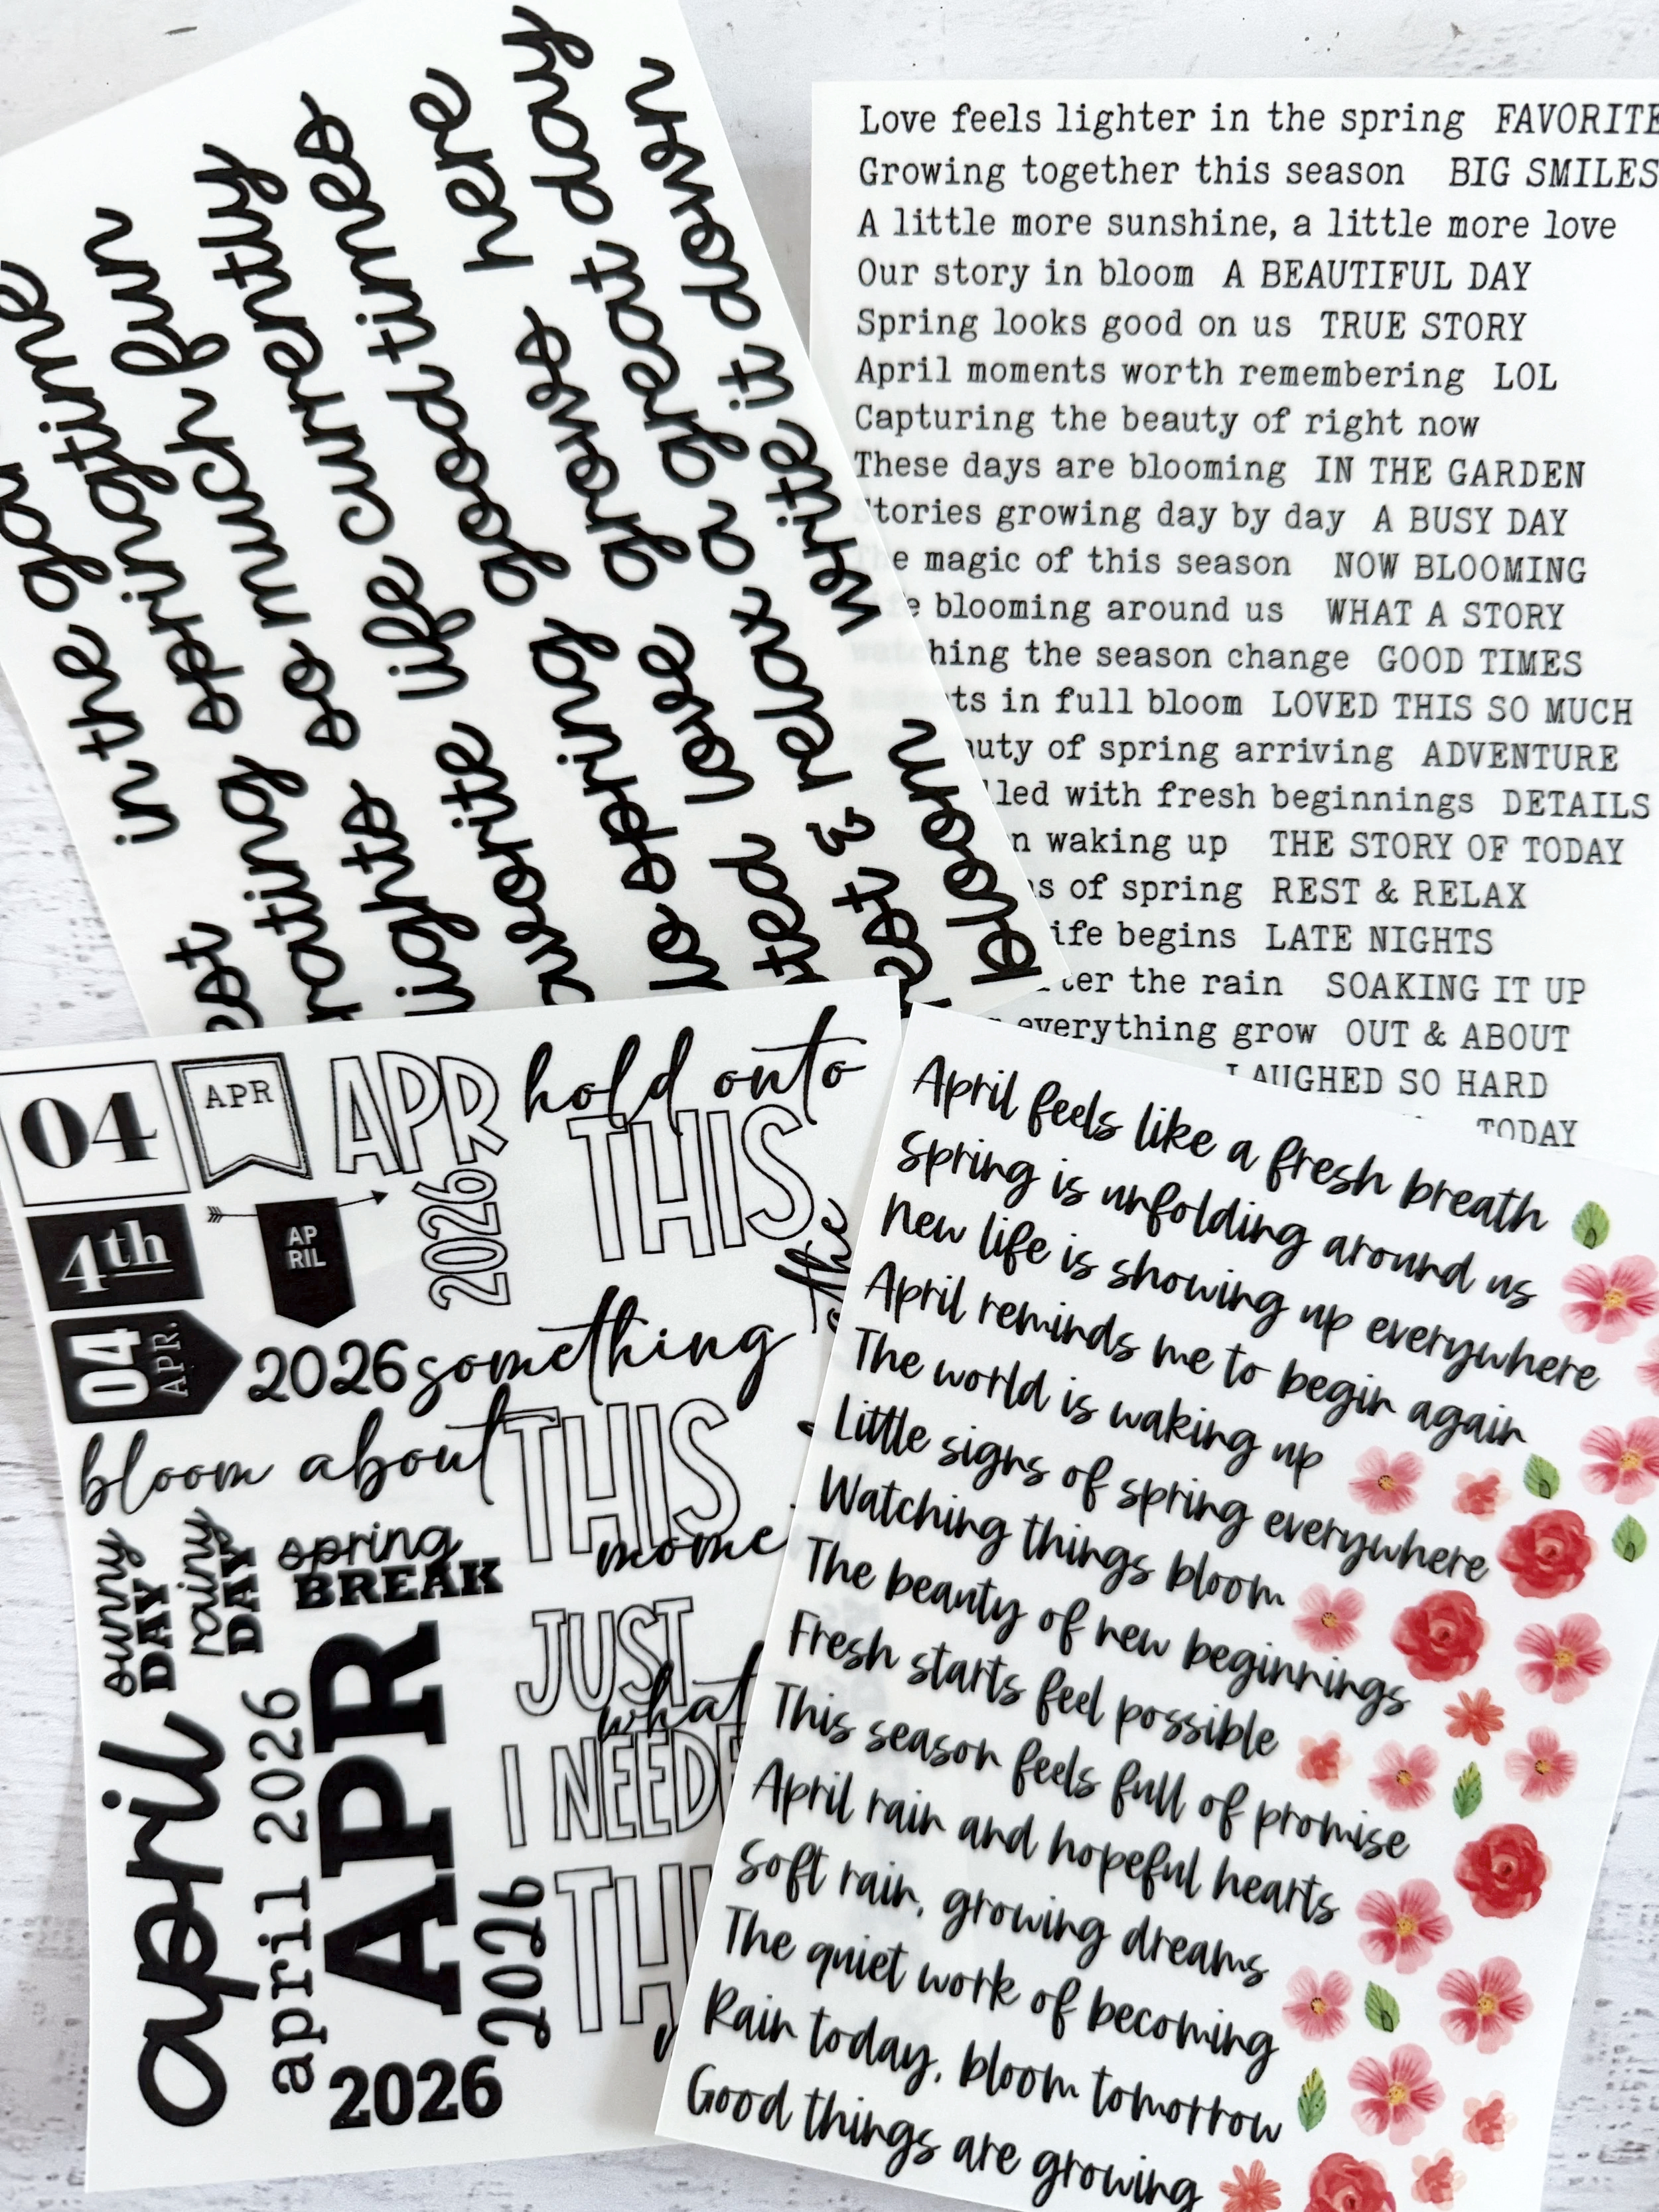 in the
springtime
so much fun
life currently
spring good times
love grows here
& relax a great day
bloom write it down
Love feels lighter in the spring FAVORITE
Growing together this season BIG SMILES
A little more sunshine, a little more love
Our story in bloom A BEAUTIFUL DAY
Spring looks good on us TRUE STORY
April moments worth remembering LOL
Capturing the beauty of right now
These days are blooming IN THE GARDEN
Stories growing day by day A BUSY DAY
The magic of this season NOW BLOOMING
blooming around us WHAT A STORY
the season change GOOD TIMES
in full bloom LOVED THIS SO MUCH
of spring arriving ADVENTURE
with fresh beginnings DETAILS
waking up THE STORY OF TODAY
of spring REST & RELAX
begins LATE NIGHTS
the rain SOAKING IT UP
everything grow OUT & ABOUT
LAUGHED SO HARD
TODAY
04
APR
APR
2026
hold onto
THIS
4th
AP
RIL
04
APR.
2026
something
the
bloom about
THIS
sunny
DAY
rainy
DAY
spring
BREAK
JUST
what
I
april
april 2026
APR
2026
2026
April feels like a fresh breath
Spring is unfolding around us
New life is showing up everywhere
April reminds me to begin again
The world is waking up
Little signs of spring everywhere
Watching things bloom
The beauty of new beginnings
Fresh starts feel possible
This season feels full of promise
April rain and hopeful hearts
Soft rain, growing dreams
The quiet work of becoming
Rain today, bloom tomorrow
Good things are growing